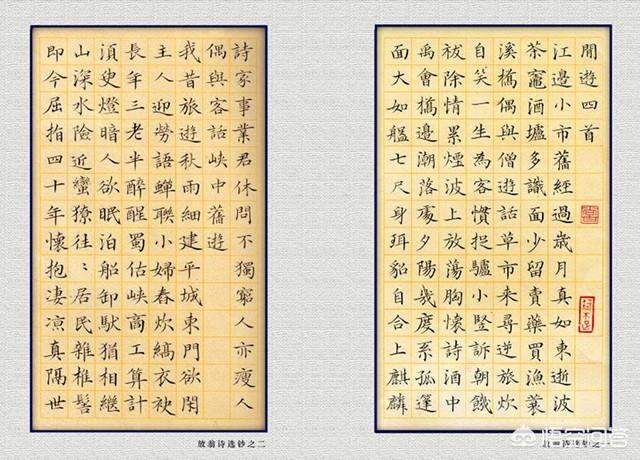 閒遊四首
江邊小市舊經過歲月真如東逝波
茶竈酒壚多識面少留賣藥買漁蓑
溪橋偶與僧遊話草市來尋逆旅炊
自笑一生為客慣捉驢小豎訴朝饑
祓除情累煙波上放蕩胸懷詩酒中
禹會橋邊潮落處夕陽幾度系孤篷
面大如盤七尺身珥貂自合上麒麟
放翁诗选钞之一
詩家事業君休問不獨窮人亦瘦人
偶與客話峽中舊遊
我昔旅遊秋雨細建平城東門欲閑
主人迎勞語蟬聯小婦舂炊縞衣袂
長年三老半醉醒蜀估峽商工算計
須臾燈暗人欲眠泊船卸馱猶相繼
山深水險近蠻獠往〻居民雜椎髻
即今屈指四十年懷抱淒涼真隔世
放翁诗选钞之二
悟空问答